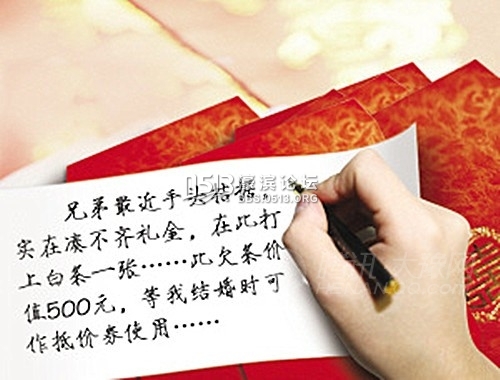 0513濠滨论坛
BBS.0513.ORG
兄弟最近手头拮据，
实在凑不齐礼金，在此打
上白条一张……此欠条价
值500元，等我结婚时可
作抵价券使用……